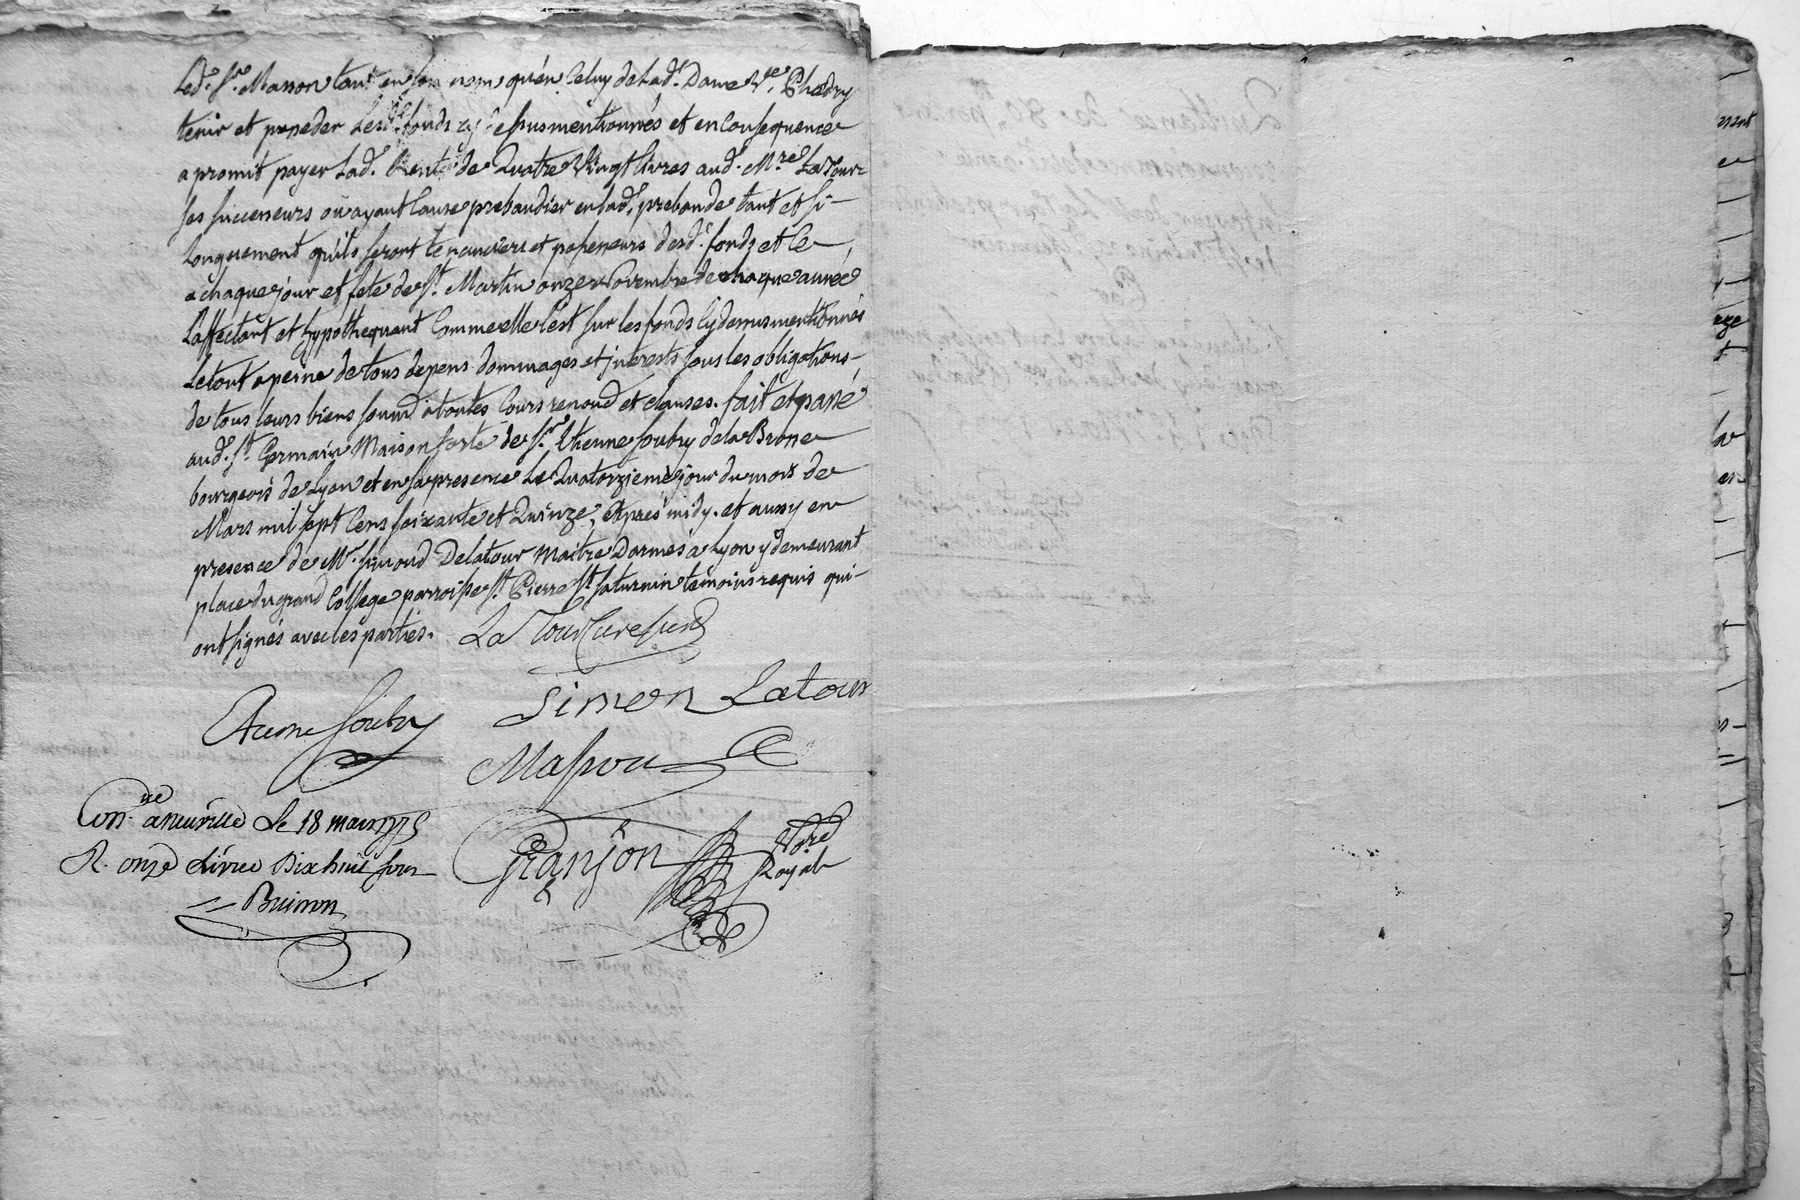 Led. Sr. Masson tant en son nom qu'en celuy de lad. Dame Ve. Chedry
tenir et posseder lesd. fonds cy dessus mentionnés et en consequence
a promit payer lad. Rente de Quatre Vingt livres aud. Mre. LaTour
ses successeurs ou ayant cause prebandier en lad. prebande tant et si
longuement qu'ils seront tenanciers et possesseurs desd. fonds et ce
a chaque jour et fete de St. Martin onze Novembre de chaque année
L'affectant et hypothequant Comme elle l'est sur les fonds cy dessus mentionnés
Le tout a peine de tous depens dommages et interests sous les obligations
de tous leurs biens soumis a toutes Cours renond. et clauses. fait et passé
aud. St. Germain Maison forte de Sr. Etienne Soubry de la Brone
bourgeois de Lyon et en sa presence Le Quatorzieme jour du mois de
Mars mil sept Cens soixante et Quinze, Apres midy. et aussy en
presence de Mr. Simond Delatour Maitre Darmes a Lyon y demeurant
place du grand College parroisse St. Pierre St. Saturnin temoins requis qui
ont signés avec les parties.
La Tour Cure
Simon Latour
Soubry
Masson
Con.lle a neuville Le 18 mars 1775
R. onze Livres Dix huit sous
Buisson
Granjon Nore.
Royal
ment
e
la
en